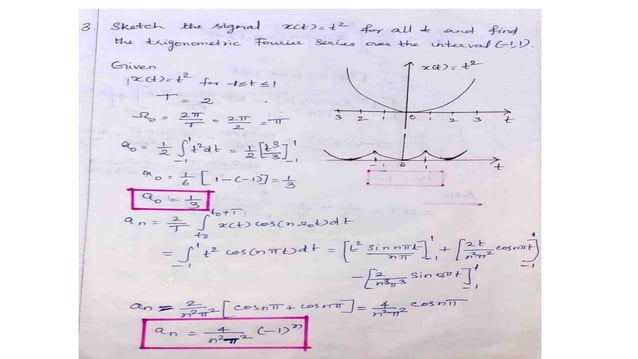 3. Sketch the signal x(t)=t² for all t and find
the trigonometric Fourier Series over the interval (-1,1).
Given
x(t)=t² for -1≤t≤1
T = 2
Ω₀ = 2π/T = 2π/2 = π
a₀ = 1/2 ∫₋₁¹ t² dt = 1/2 [t³/3]₋₁¹
a₀ = 1/6 [1-(-1)] = 1/3
a₀ = 1/3
x(t)=t²
3 2 1 0 1 2 3 t
-1 0 1 t
aₙ = 2/T ∫ₜ₀^(t₀+T) x(t) cos(nΩ₀t) dt
= ∫₋₁¹ t² cos(nπt) dt = [t² sin nπt/nπ]₋₁¹ + [2t/n²π² cos nπt]₋₁¹
- [2/n³π³ sin nπt]₋₁¹
aₙ = 2/n²π² [cos nπ + cos nπ] = 4/n²π² cos nπ
aₙ = 4/n²π² (-1)ⁿ